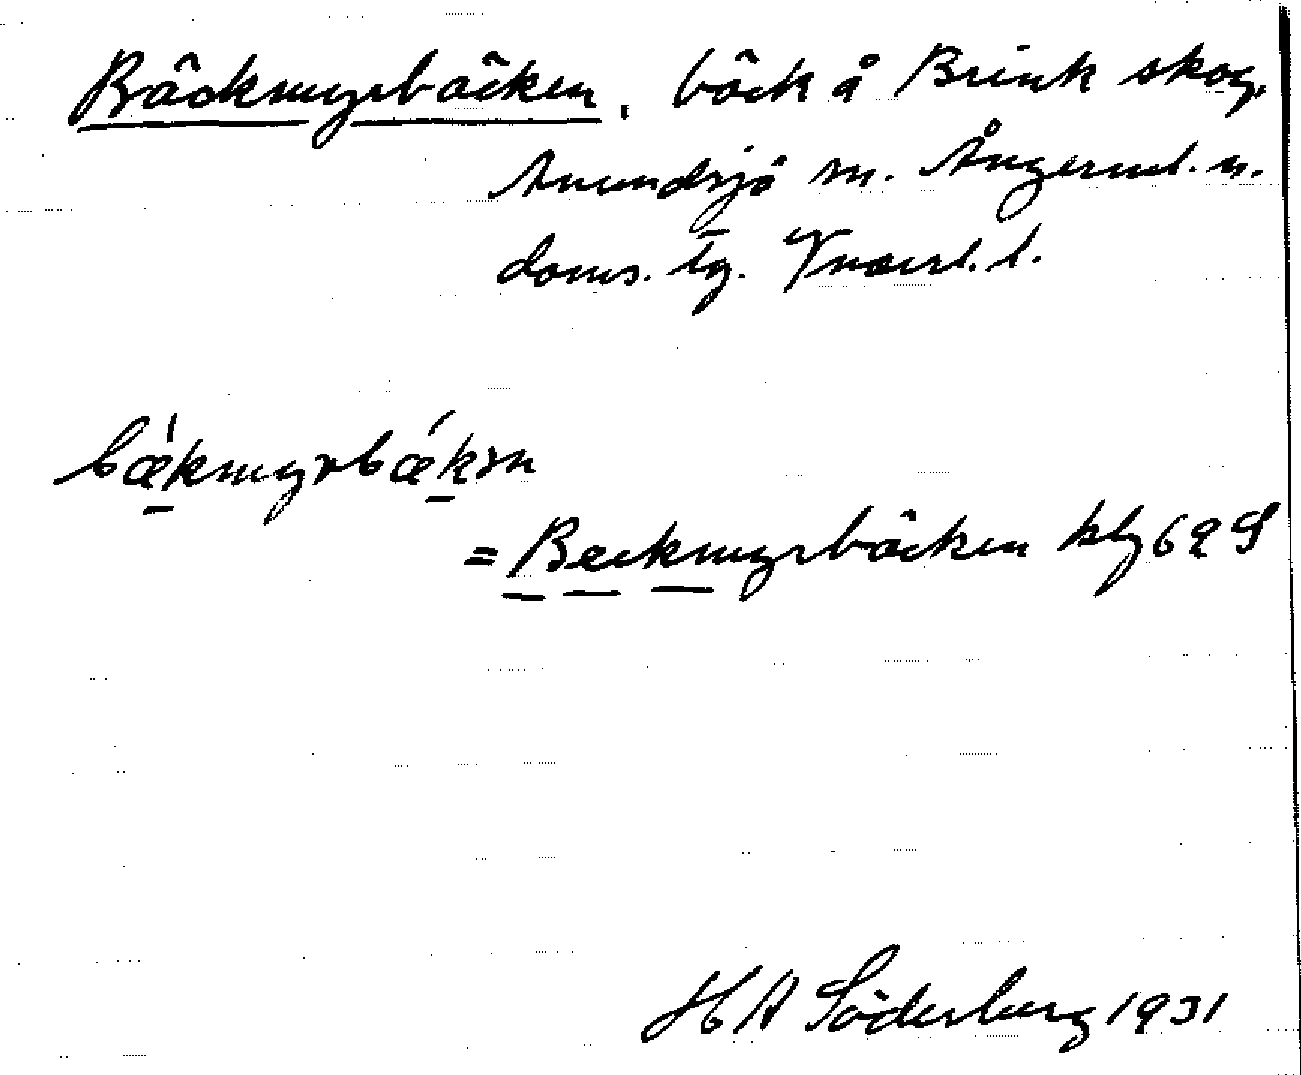 Bäckmyrbäcken, bäck å Brink skog,
Anundsjö sn. Ångerml. n.
doms. lg. Vnorrl. l.
bækmyrbækən
= Beckmyrbäcken blg 62 S
H A Söderberg 1931